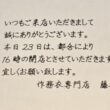 いつもご来店いただきまして
誠にありがとうございます。
本日23日は、都合により
16時の閉店とさせていただきます
宜しくお願い致します。
作務衣専門店　藤